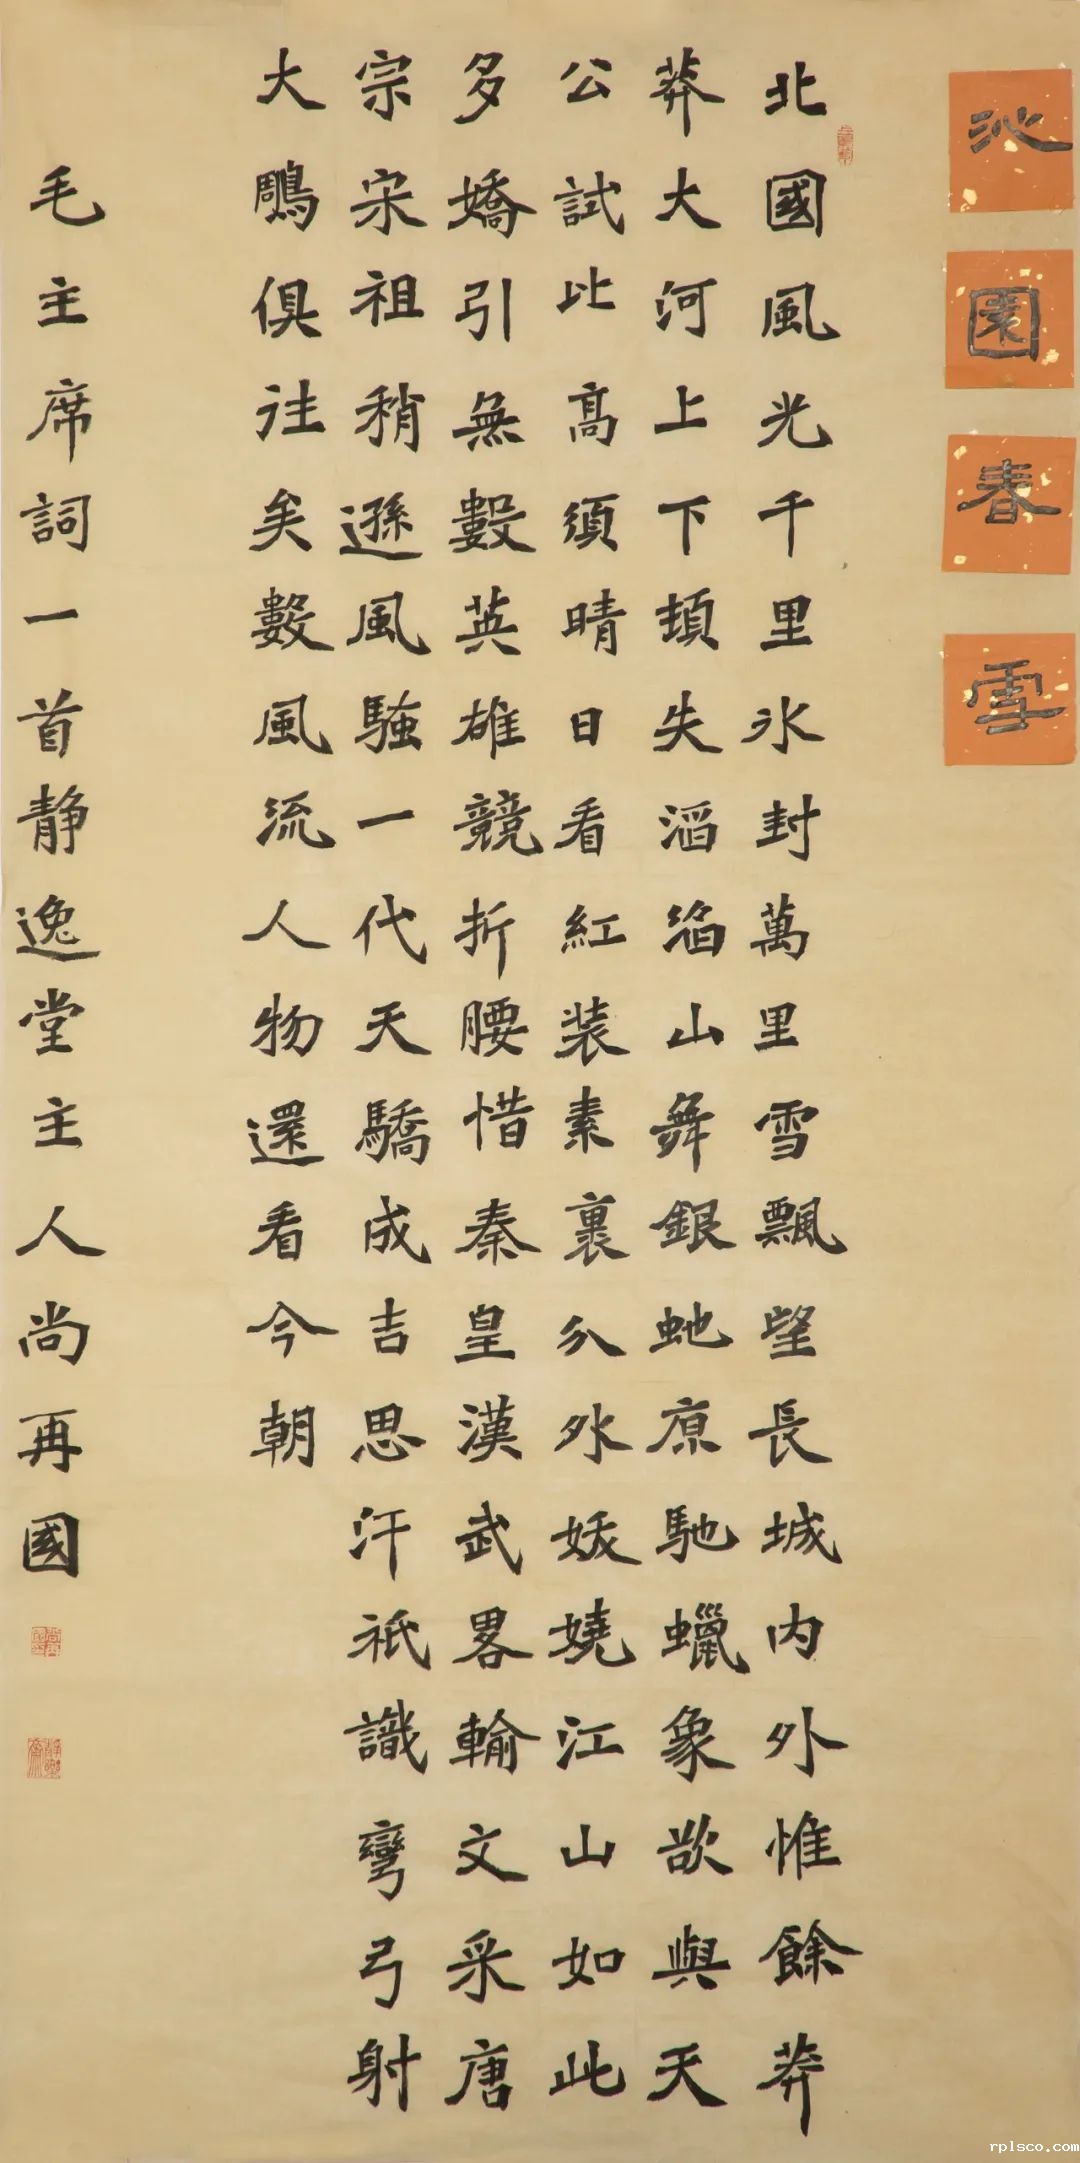 沁園春雪
北國風光千里氷封萬里雪飄望長城内外惟餘莽
莽大河上下頓失滔滔山舞銀虵原馳蠟象欲與天
公試比高須晴日看紅装素裹分外妖嬈江山如此
多嬌引無數英雄競折腰惜秦皇漢武畧輸文采唐
宗宋祖稍遜風騷一代天驕成吉思汗祇識彎弓射
大鵰俱往矣數風流人物還看今朝
毛主席詞一首静逸堂主人尚再國
rplsco.com